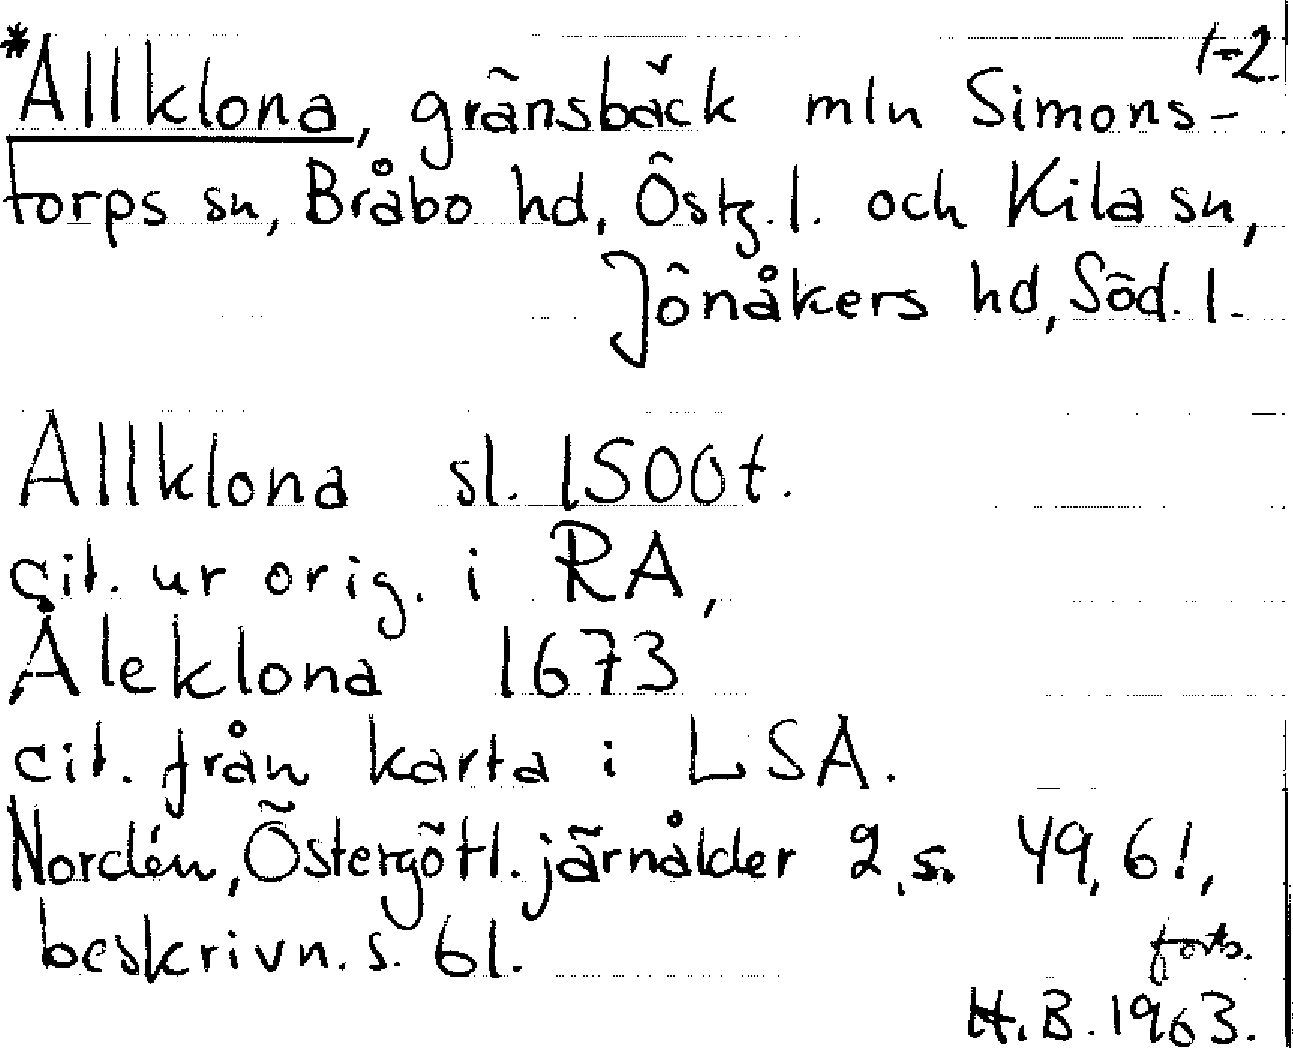 1-2.
*Allklona, gränsbäck mln Simons-
torps sn, Bråbo hd, Östg. l. och Kila sn,
Jönåkers hd, Söd. l.
Allklona sl. 1500t.
cit. ur orig. i RA,
Åleklona 1673
cit. från karta i LSA.
Nordén, Östergötl. järnålder 2, s. 49, 61,
beskrivn. s. 61.
forts.
H.B. 1963.